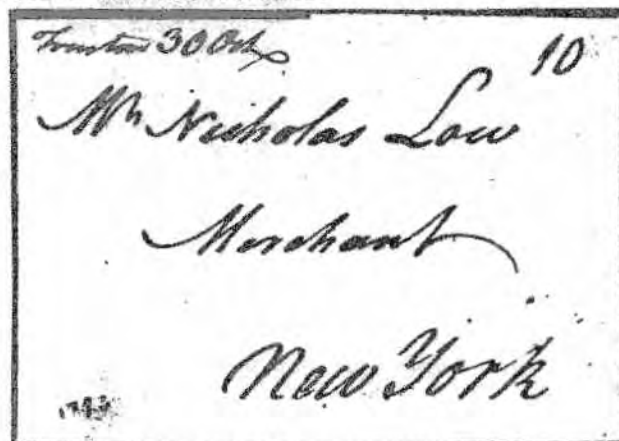 Trenton 30 Oct
10
Mr Nicholas Low
Merchant
New York